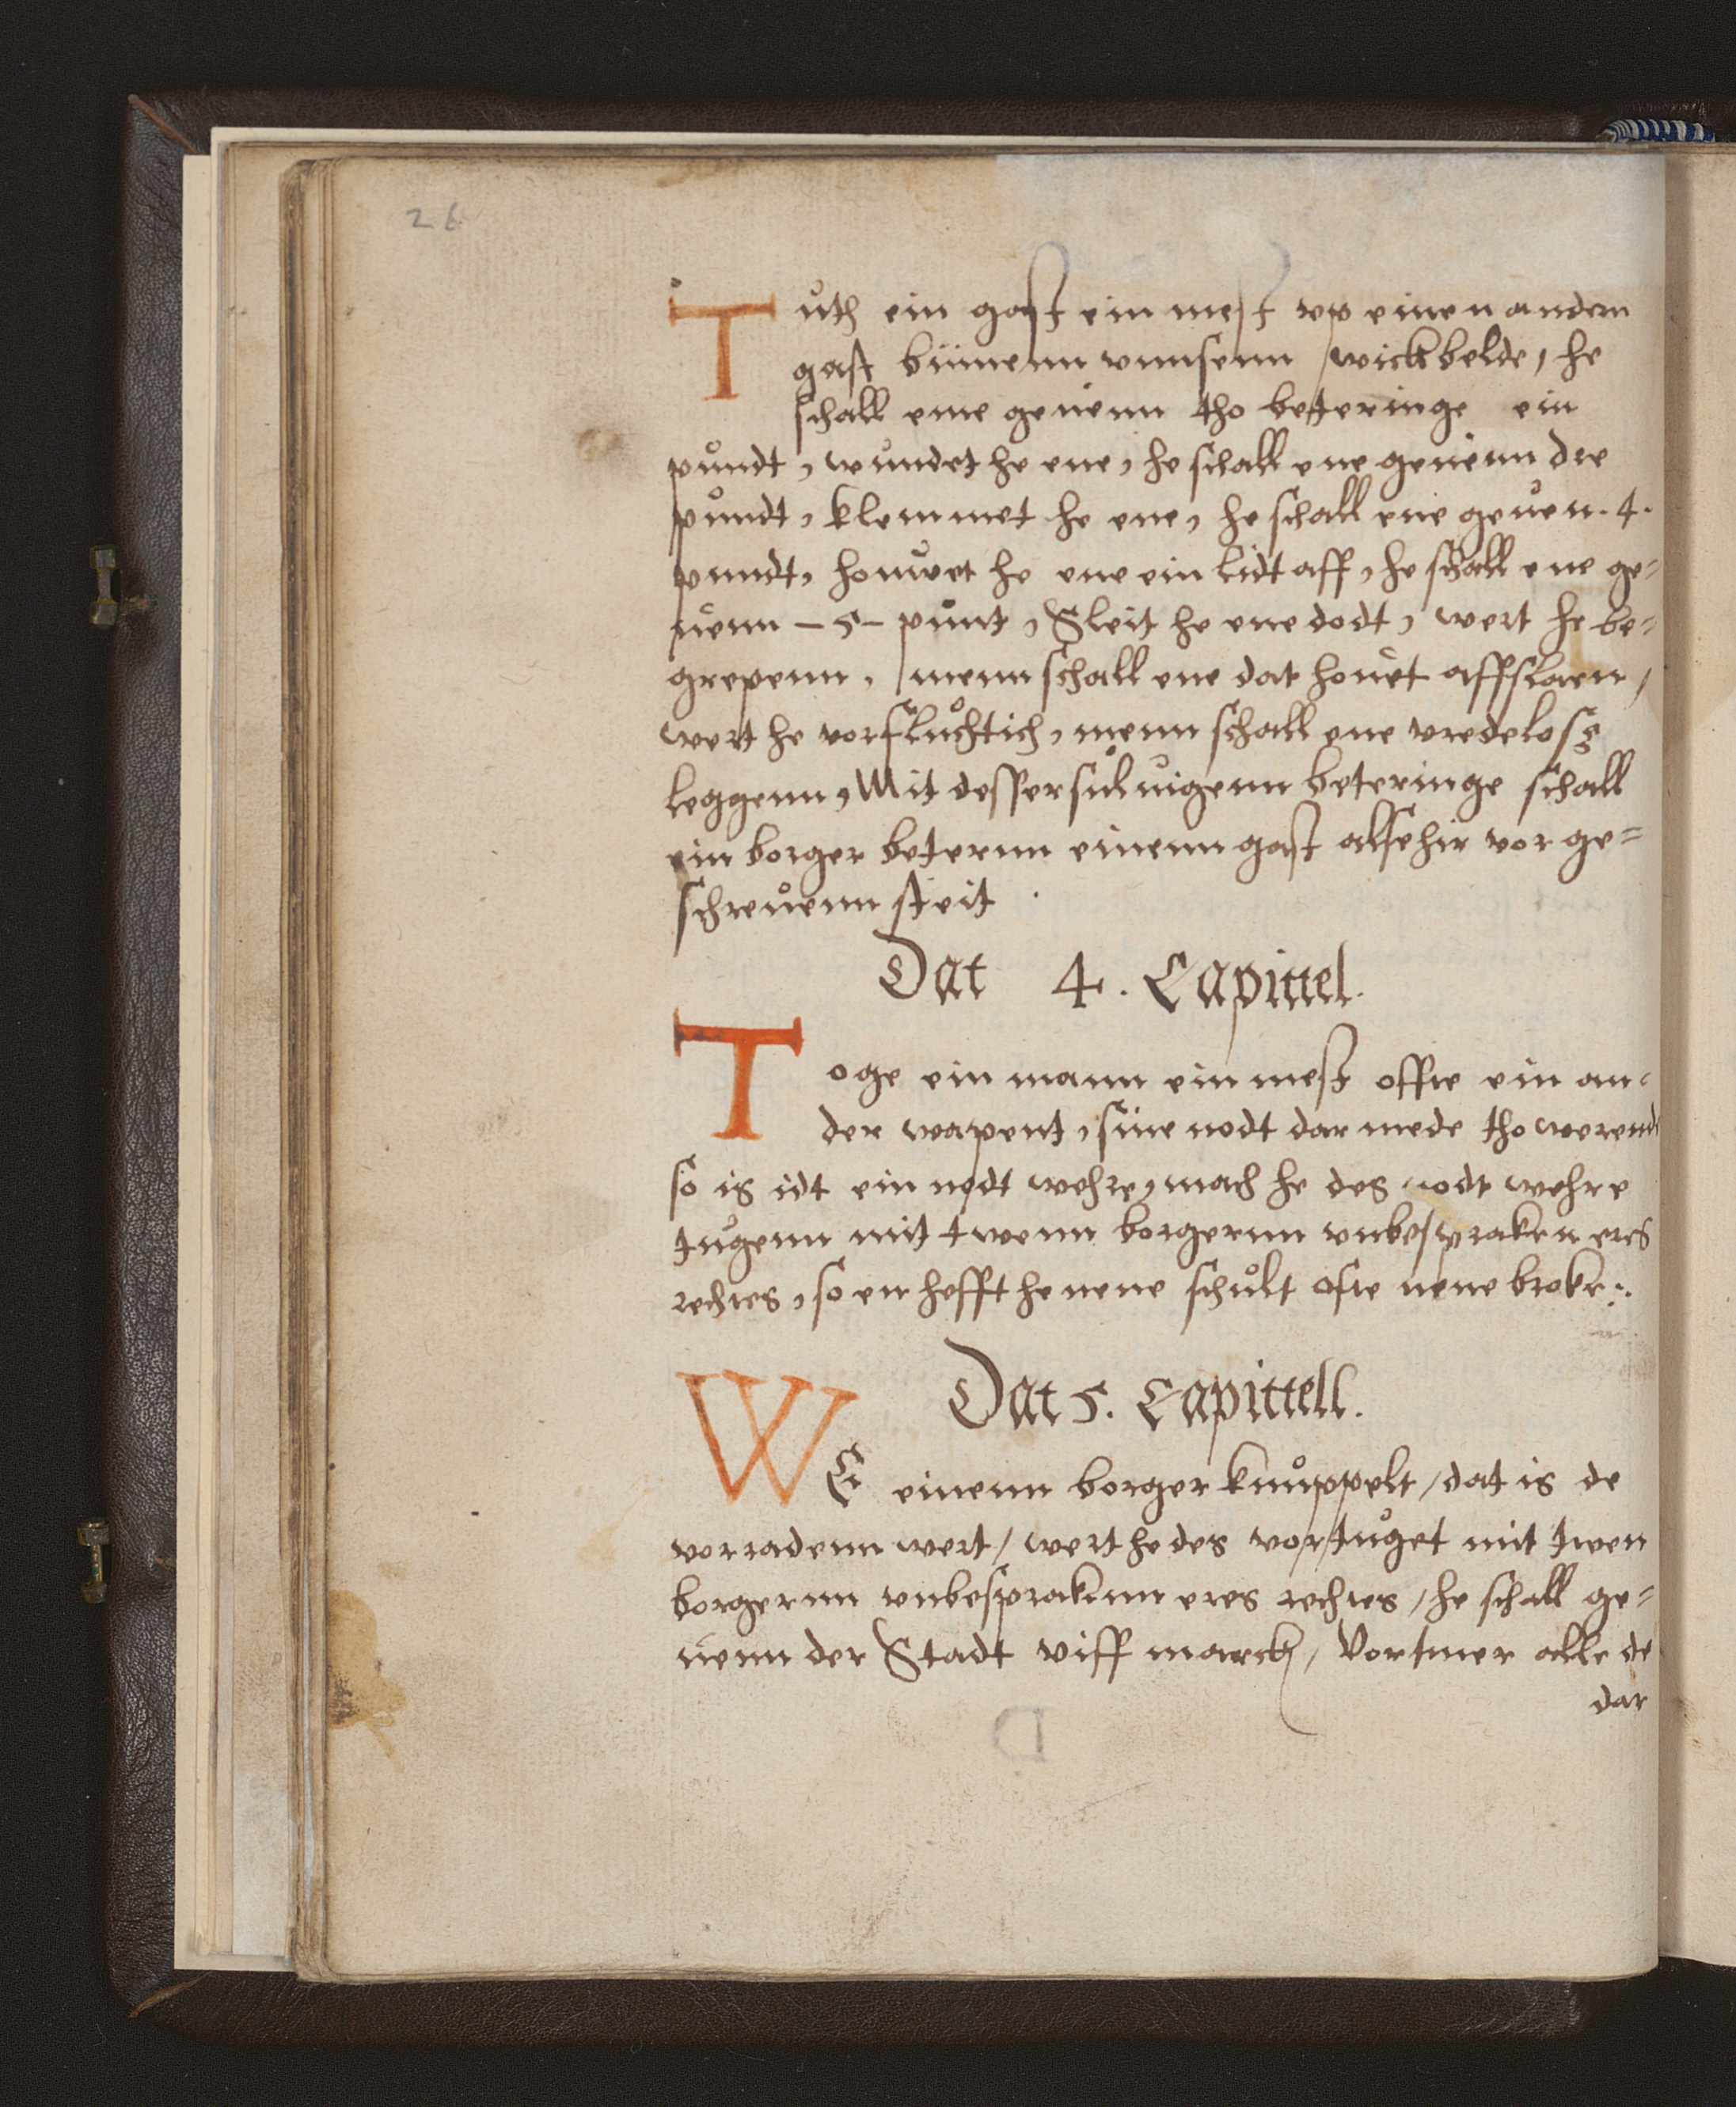 26
Tuth ein gast ein mest vp einen andern
gast binnenn vnnsenn wickbelde, he
schall eme geuenn tho beteringe ein
pundt, wundet he ene, he schall ene geuenn dre
pundt, klemmet he ene, he schall ene geuen .4.
pundt, houwet he ene ein lidt aff, he schall ene ge=
uenn – 5 – punt, Sleit he ene dodt, wert he be=
grepenn, menn schall ene dat houet affslaen,
wert he vorfluchtich, menn schall ene vredeloss
leggenn, Mit dessersuluigenn beteringe schall
ein borger beternn einenn gast alse hir vor ge=
schreuenn steit .
Dat 4. Capittel.
Toge ein mann ein mest offte ein an=
der wapent, sine nodt dar mede tho werend
so is idt ein nodt wehre, mach he des nodt wehre
tugenn mit twenn borgernn vnbespraken eres
rechtes, so en hefft he nene schult ofte nene broke :.
Dat 5. Capittell.
WE einenn borger knuppelt / dat is de
vorradenn wert / wert he des vortuget mit twen
borgernn vnbesprakenn eres rechtes / he schall ge=
uenn der Stadt viff marck / Vortmer alle de
dar